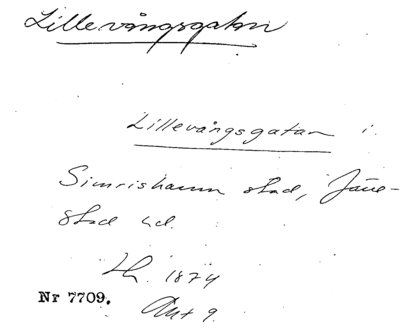 Lillevångsgatan
Lillevångsgatan i
Simrishamn stad, Järre-
stad hd.
Lh. 1874
Nr 7709.
Ant 9.